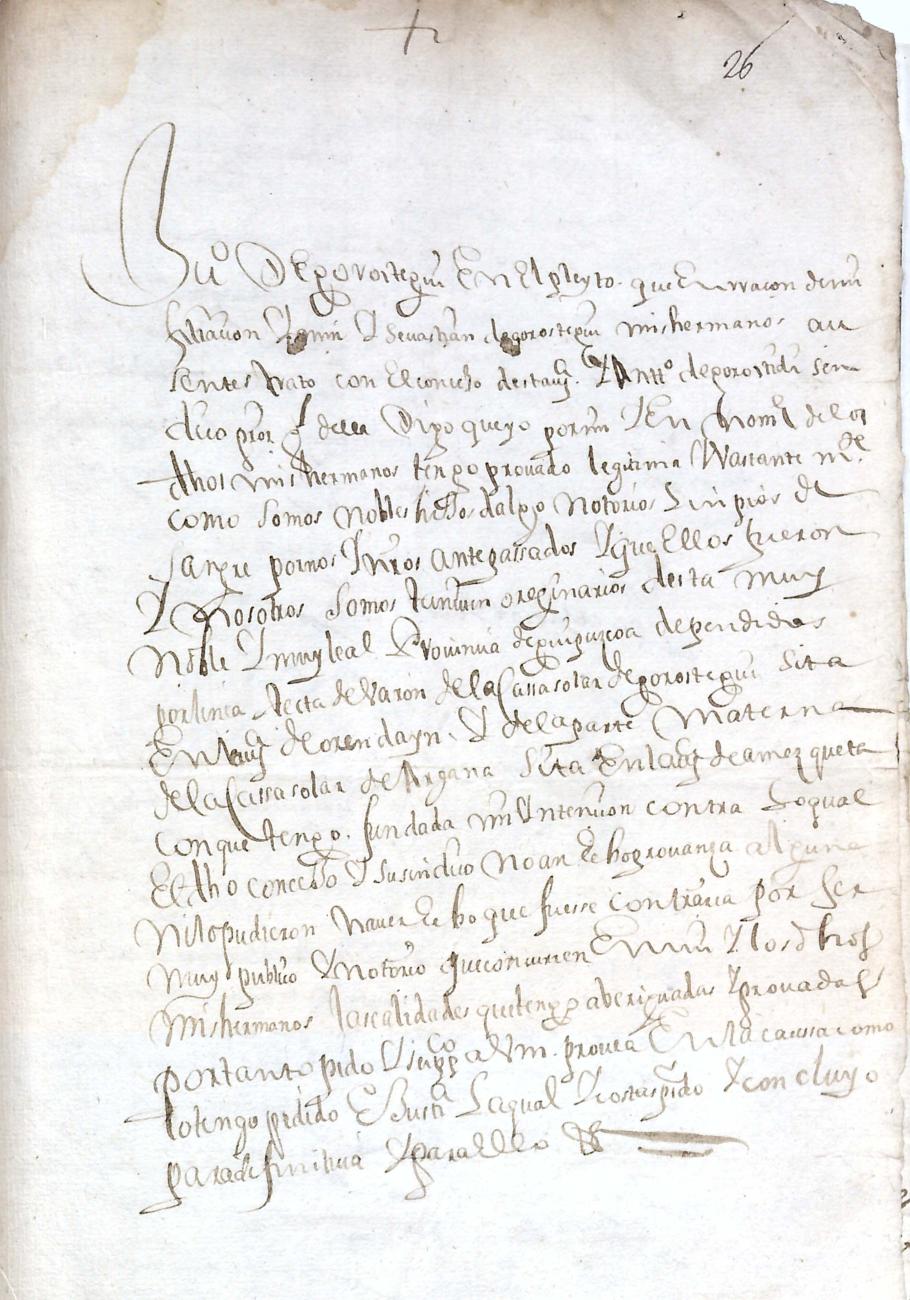 26
Ju.º De gorostegui En El pleyto. que En rraçon de mi
filiaçion Y de min Y Sevastian de gorostegui mis hermanos au
sentes trato con El concejo desta vª. Y Antt.º de gorostidi sin
dico pror g.l della Digo que yo por mi Y En Nomb.e de los
dhos mis hermanos tengo provado legitima Y Vastante m.te
como somos nobles hijos dalgo notorios Limpios de
Sangre por nos Y nros antepassados Y que Ellos fueron
Y Nosotros Somos tanvien oreginarios desta muy
Noble Y muy leal Provinçia de guipuzcoa dependidos
por linea Recta de Varon de la Cassa solar de gorostegui Sita
En la vª de orendayn. Y de la parte Materna
de la Cassa solar de Argana Sita En la vª de amezqueta
con que tengo. fundada mi Yntençion contra Lo qual
El dho concejo Y su sindico no an fecho provança alguna
ni lo pudieron haver fecho que fuesse contraria por ser
muy publico Y notorio que concurren En mi Y los dhos
mis hermanos las calidades que tengo aberiguadas Y provadas
por tanto pido Y supp.co a Vm. provea En la caussa como
lo tengo pedido E Justª La qual Y costas pido Y concluyo
para difinitiva Y para Ello Etª